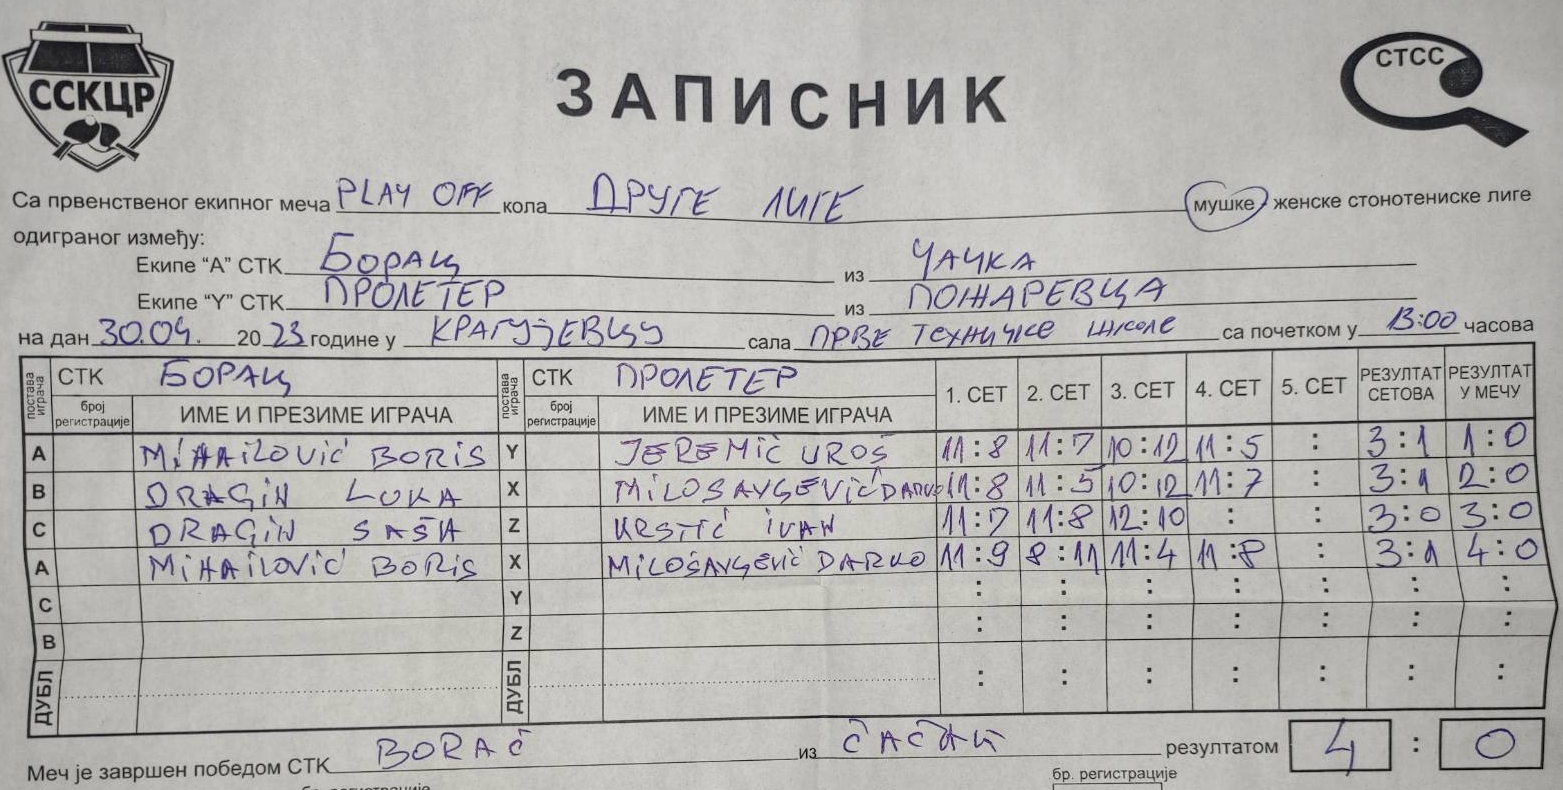 ССКЦР
СТСС
ЗАПИСНИК
Са првенственог екипног меча PLAY OFF кола ДРУГЕ ЛИГЕ мушке женске стонотениске лиге
одиграног између:
Екипе "А" СТК Борац из ЧАЧКА
Екипе "Y" СТК ПРОЛЕТЕР из ПОЖАРЕВЦА
на дан 30.04. 2023 године у КРАГУЈЕВЦУ сала ПРВЕ ТЕХНИЧКЕ ШКОЛЕ са почетком у 13:00 часова
постава играча СТК БОРАЦ постава играча СТК ПРОЛЕТЕР 1. СЕТ 2. СЕТ 3. СЕТ 4. СЕТ 5. СЕТ РЕЗУЛТАТ СЕТОВА РЕЗУЛТАТ У МЕЧУ
број регистрације ИМЕ И ПРЕЗИМЕ ИГРАЧА број регистрације ИМЕ И ПРЕЗИМЕ ИГРАЧА
A MIHAILOVIĆ BORIS Y JEREMIĆ UROŠ 11:8 11:7 10:12 11:5 : 3:1 1:0
B DRAGIN LUKA X MILOSAVLJEVIĆ DARKO 11:8 11:5 10:12 11:7 : 3:1 2:0
C DRAGIN SAŠA Z KRSTIĆ IVAN 11:7 11:8 12:10 : : 3:0 3:0
A MIHAILOVIĆ BORIS X MILOSAVLJEVIĆ DARKO 11:9 8:11 11:4 11:8 : 3:1 4:0
C Y : : : : : : :
B Z : : : : : : :
ДУБЛ ДУБЛ : : : : : : :
Меч је завршен победом СТК BORAC из ČAČAK резултатом 4 : 0
бр. регистрације
бр. регистрације